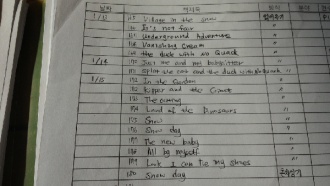 날짜 책제목
1/13 165 Village in the snow
166 It's not fair
167 Underground Adventure
168 Vanishing Cream
169 the duck with no Quack
1/14 170 Just me and my babysitter
171 Splat the cat and the duck with no Quack
1/15 172 In the Garden
Kipper and the Giant
The outing
174 Land of the Dinosaurs
175 Snow
176 Snow day
177 The new baby
178 All by myself
179 Look I can tie my shoes
180 Snow day